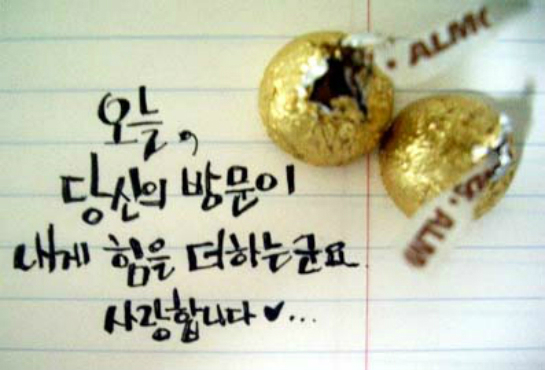 오늘,
당신의 방문이
내게 힘을 더하는군요
사랑합니다 ♥...
• ALM
S • ALM